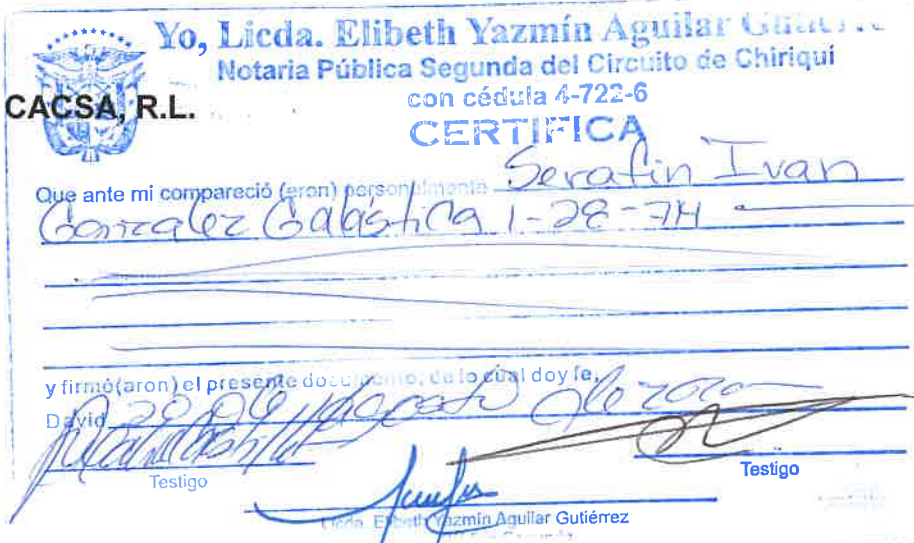 Yo, Licda. Elibeth Yazmín Aguilar
Notaria Pública Segunda del Circuito de Chiriquí
con cédula 4-722-6
CACSA, R.L.
CERTIFICA
Que ante mi compareció (eron) personalmente Serafin Ivan
Gonzalez Galástica 1-28-74
y firmó(aron) el presente documento, de lo cual doy fe.
David 20 de Agosto de 2020
Testigo
Testigo
Licda. Elibeth Yazmín Aguilar Gutiérrez